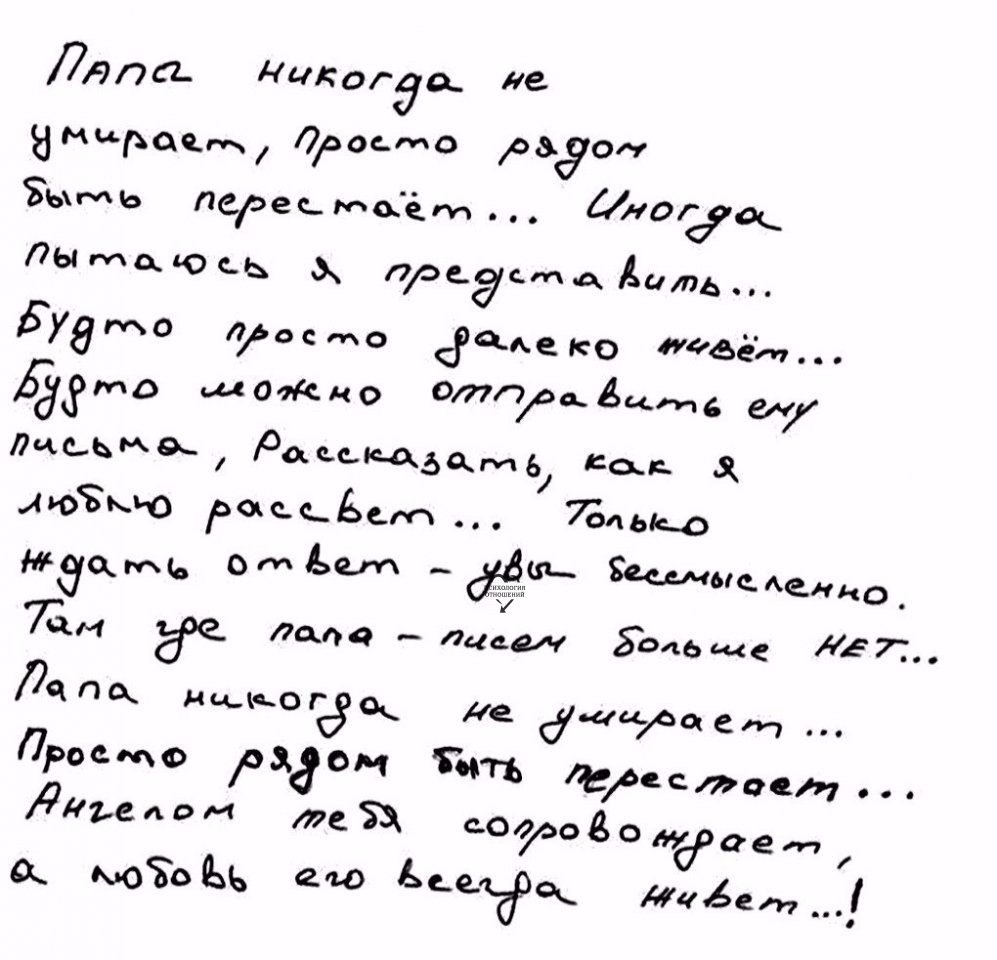 Папа никогда не
умирает, Просто рядом
быть перестаёт... Иногда
пытаюсь я представить...
Будто просто далеко живёт...
Будто можно отправить ему
письма, Рассказать, как я
люблю рассвет... Только
ждать ответ - увы бессмысленно.
ПСИХОЛОГИЯ
ОТНОШЕНИЙ
Там где папа - писем больше НЕТ...
Папа никогда не умирает...
Просто рядом быть перестает...
Ангелом тебя сопровождает,
а любовь его всегда живет...!